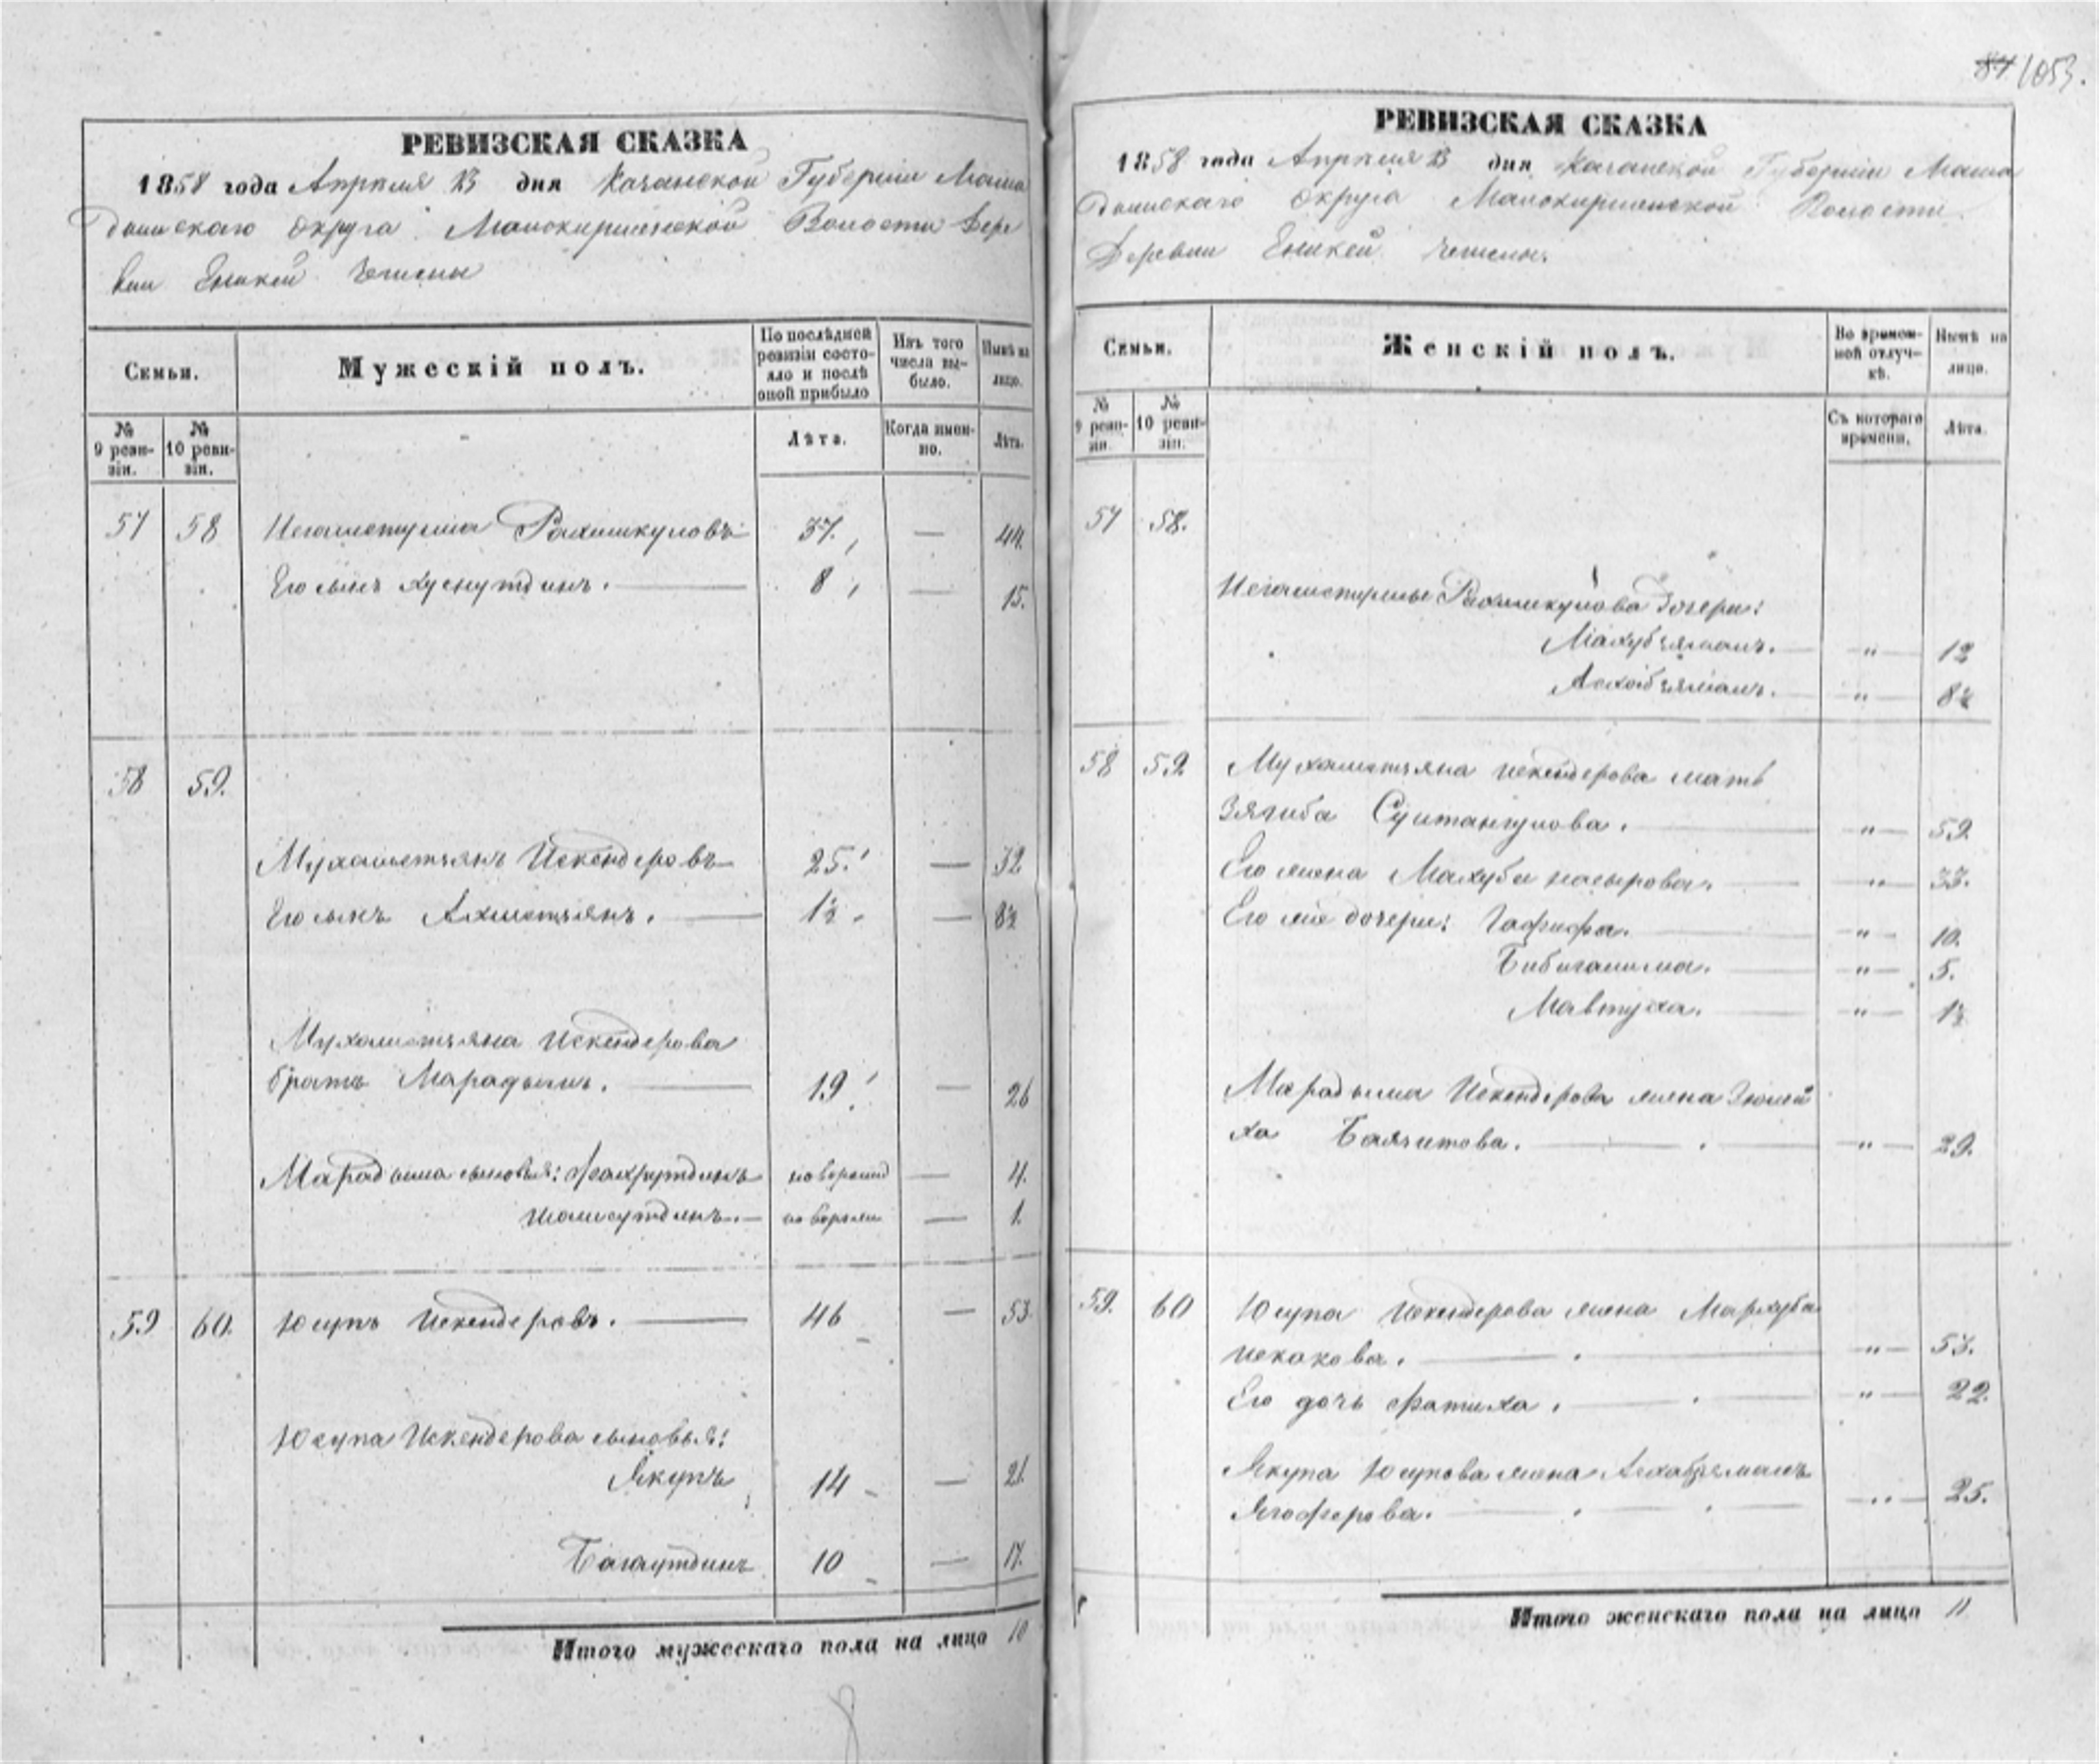 87 1053.
РЕВИЗСКАЯ СКАЗКА
1858 года Апрѣля 13 дня Казанской Губерніи Мама
дышскаго Округа Малокирменской Волости Дере
вни Еникей Чишмы
Семьи.
Мужескій полъ.
По послѣдней ревизіи состояло и послѣ оной прибыло
Изъ того числа выбыло.
Нынѣ на лицо.
№ 9 ревизіи.
№ 10 ревизіи.
Лѣта.
Когда именно.
Лѣта.
57 58 Негаметулла Рахимкуловъ 37. — 44.
Его сынъ Хуснутдинъ. 8 — 15.
58 59.
Мухаметзянъ Искендеровъ 25. — 32
Его сынъ Ахметзянъ. 1½ — 8½
Мухаметзяна Искендерова
братъ Марадымъ. 19 — 26
Марадыма сыновья: Фахрутдинъ новорожд — 4.
новорожд — 1.
59 60. Юсупъ Искендеровъ. 46 — 53.
Юсупа Искендерова сыновья:
Якупъ 14 — 21.
Багаутдинъ 10 — 17.
Итого мужескаго пола на лицо 10
РЕВИЗСКАЯ СКАЗКА
1858 года Апрѣля 13 дня Казанской Губерніи Мама
дышскаго Округа Малокирменской Волости
Деревни Еникей Чишмы.
Семьи.
Женскій полъ.
Во временной отлучкѣ.
Нынѣ на лицо.
№ 9 ревизіи.
№ 10 ревизіи.
Съ котораго времени.
Лѣта.
57 58.
Негаметуллы Рахимкулова дочери:
Махубзямалъ. " 12
Асхабзямалъ. " 8½
58 59 Мухаметзяна Искендерова мать
Зягиба Султангулова. " 59.
Его жена Махуба Насырова. " 33.
Его же дочери: Гафифа. " 10.
Бибиганима. " 5.
Мавтуха. " 1½
Марадыма Искендерова жена Зюлей
ха Баязитова. " 29.
59. 60 Юсупа Искендерова жена Мархуба
Искакова. " 57.
Его дочь Фатиха. " 22.
Якупа Юсупова жена Асхабзямалъ
Ягоферова. " 25.
Итого женскаго пола на лицо 11